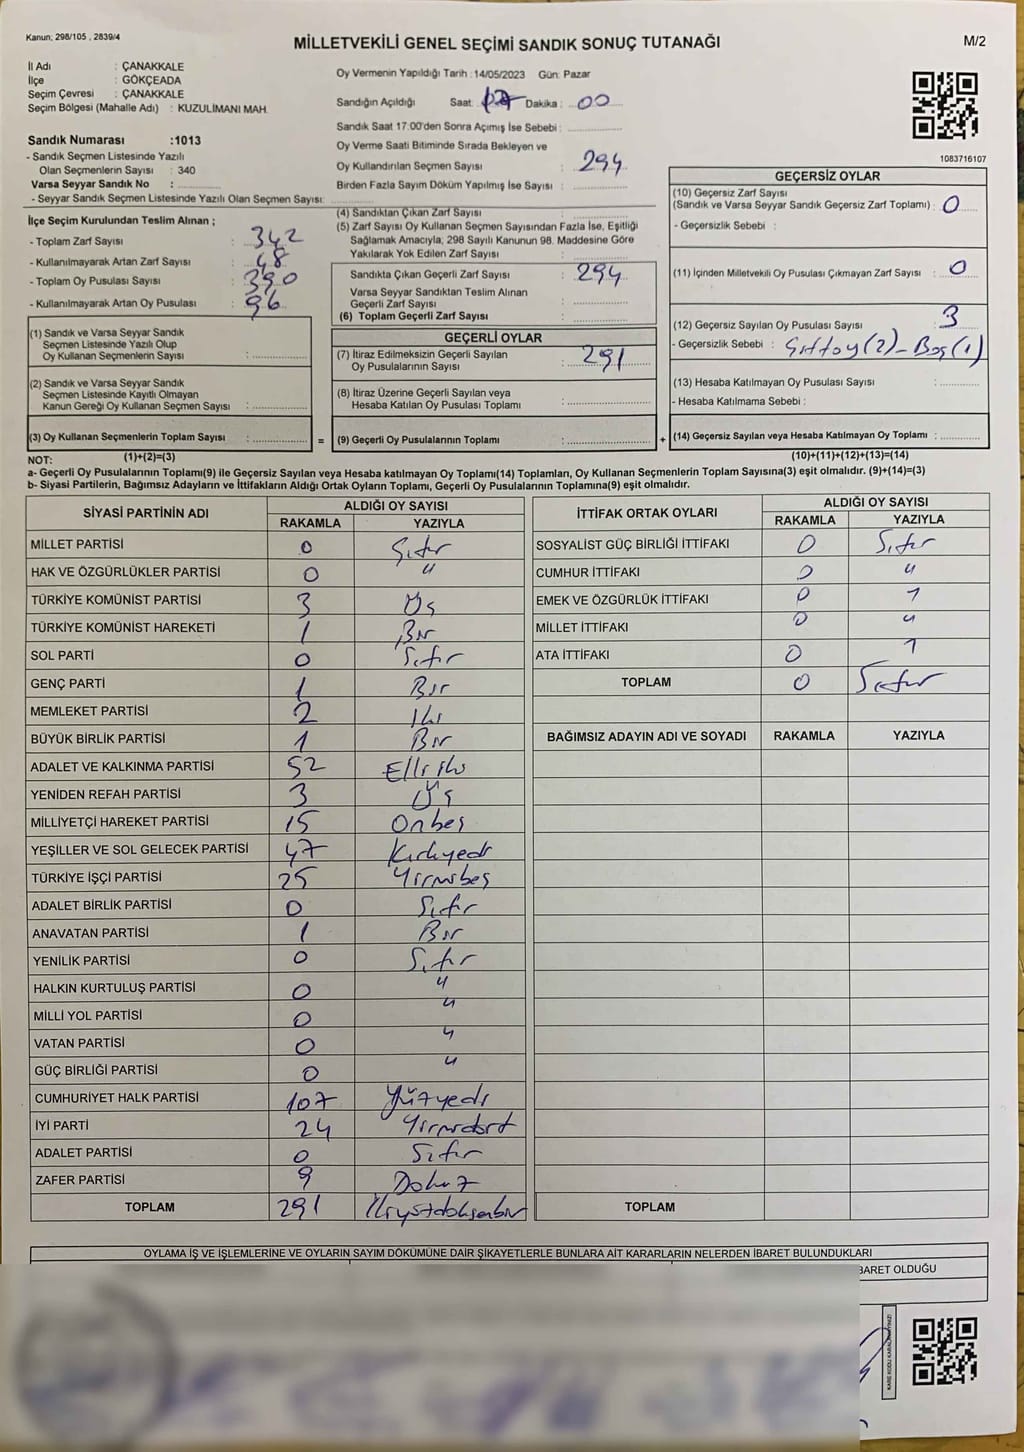 Kanun; 298/105 , 2839/4
MİLLETVEKİLİ GENEL SEÇİMİ SANDIK SONUÇ TUTANAĞI
M/2
İl Adı : ÇANAKKALE
İlçe : GÖKÇEADA
Seçim Çevresi : ÇANAKKALE
Seçim Bölgesi (Mahalle Adı) : KUZULİMANI MAH.
Sandık Numarası :1013
- Sandık Seçmen Listesinde Yazılı
Olan Seçmenlerin Sayısı : 340
Varsa Seyyar Sandık No :
- Seyyar Sandık Seçmen Listesinde Yazılı Olan Seçmen Sayısı:
Oy Vermenin Yapıldığı Tarih :14/05/2023 Gün: Pazar
Sandığın Açıldığı Saat: 17 Dakika : 00
Sandık Saat 17:00'den Sonra Açımış İse Sebebi :
Oy Verme Saati Bitiminde Sırada Bekleyen ve
Oy Kullandırılan Seçmen Sayısı : 294
Birden Fazla Sayım Döküm Yapılmış İse Sayısı :
1083716107
İlçe Seçim Kurulundan Teslim Alınan ;
- Toplam Zarf Sayısı : 342
- Kullanılmayarak Artan Zarf Sayısı : 48
- Toplam Oy Pusulası Sayısı : 390
- Kullanılmayarak Artan Oy Pusulası : 96
(1) Sandık ve Varsa Seyyar Sandık
Seçmen Listesinde Yazılı Olup
Oy Kullanan Seçmenlerin Sayısı :
(2) Sandık ve Varsa Seyyar Sandık
Seçmen Listesinde Kayıtlı Olmayan
Kanun Gereği Oy Kullanan Seçmen Sayısı :
(3) Oy Kullanan Seçmenlerin Toplam Sayısı :
=
(4) Sandıktan Çıkan Zarf Sayısı :
(5) Zarf Sayısı Oy Kullanan Seçmen Sayısından Fazla İse, Eşitliği
Sağlamak Amacıyla; 298 Sayılı Kanunun 98. Maddesine Göre
Yakılarak Yok Edilen Zarf Sayısı :
Sandıkta Çıkan Geçerli Zarf Sayısı : 294
Varsa Seyyar Sandıktan Teslim Alınan
Geçerli Zarf Sayısı :
(6) Toplam Geçerli Zarf Sayısı :
GEÇERLİ OYLAR
(7) İtiraz Edilmeksizin Geçerli Sayılan
Oy Pusulalarının Sayısı : 291
(8) İtiraz Üzerine Geçerli Sayılan veya
Hesaba Katılan Oy Pusulası Toplamı :
(9) Geçerli Oy Pusulalarının Toplamı :
+
GEÇERSİZ OYLAR
(10) Geçersiz Zarf Sayısı
(Sandık ve Varsa Seyyar Sandık Geçersiz Zarf Toplamı) : 0
- Geçersizlik Sebebi :
(11) İçinden Milletvekili Oy Pusulası Çıkmayan Zarf Sayısı : 0
(12) Geçersiz Sayılan Oy Pusulası Sayısı : 3
- Geçersizlik Sebebi : Çiftoy(2)-Boş(1)
(13) Hesaba Katılmayan Oy Pusulası Sayısı :
- Hesaba Katılmama Sebebi :
(14) Geçersiz Sayılan veya Hesaba Katılmayan Oy Toplamı :
NOT: (1)+(2)=(3)
(10)+(11)+(12)+(13)=(14)
a- Geçerli Oy Pusulalarının Toplamı(9) ile Geçersiz Sayılan veya Hesaba katılmayan Oy Toplamı(14) Toplamları, Oy Kullanan Seçmenlerin Toplam Sayısına(3) eşit olmalıdır. (9)+(14)=(3)
b- Siyasi Partilerin, Bağımsız Adayların ve İttifakların Aldığı Ortak Oyların Toplamı, Geçerli Oy Pusulalarının Toplamına(9) eşit olmalıdır.
SİYASİ PARTİNİN ADI
ALDIĞI OY SAYISI
RAKAMLA YAZIYLA
MİLLET PARTİSİ 0 Sıfır
HAK VE ÖZGÜRLÜKLER PARTİSİ 0 "
TÜRKİYE KOMÜNİST PARTİSİ 3 Üç
TÜRKİYE KOMÜNİST HAREKETİ 1 Bir
SOL PARTİ 0 Sıfır
GENÇ PARTİ 1 Bir
MEMLEKET PARTİSİ 2 İki
BÜYÜK BİRLİK PARTİSİ 1 Bir
ADALET VE KALKINMA PARTİSİ 52 Elliiki
YENİDEN REFAH PARTİSİ 3 Üç
MİLLİYETÇİ HAREKET PARTİSİ 15 Onbeş
YEŞİLLER VE SOL GELECEK PARTİSİ 47 Kırkyedi
TÜRKİYE İŞÇİ PARTİSİ 25 Yirmibeş
ADALET BİRLİK PARTİSİ 0 Sıfır
ANAVATAN PARTİSİ 1 Bir
YENİLİK PARTİSİ 0 Sıfır
HALKIN KURTULUŞ PARTİSİ 0 "
MİLLİ YOL PARTİSİ 0 "
VATAN PARTİSİ 0 "
GÜÇ BİRLİĞİ PARTİSİ 0 "
CUMHURİYET HALK PARTİSİ 107 Yüzyedi
İYİ PARTİ 24 Yirmidört
ADALET PARTİSİ 0 Sıfır
ZAFER PARTİSİ 9 Dokuz
TOPLAM 291 İkiyüzdoksanbir
İTTİFAK ORTAK OYLARI
ALDIĞI OY SAYISI
RAKAMLA YAZIYLA
SOSYALİST GÜÇ BİRLİĞİ İTTİFAKI 0 Sıfır
CUMHUR İTTİFAKI 0 "
EMEK VE ÖZGÜRLÜK İTTİFAKI 0 "
MİLLET İTTİFAKI 0 "
ATA İTTİFAKI 0 "
TOPLAM 0 Sıfır
BAĞIMSIZ ADAYIN ADI VE SOYADI RAKAMLA YAZIYLA
TOPLAM
OYLAMA İŞ VE İŞLEMLERİNE VE OYLARIN SAYIM DÖKÜMÜNE DAİR ŞİKAYETLERLE BUNLARA AİT KARARLARIN NELERDEN İBARET BULUNDUKLARI
BARET OLDUĞU